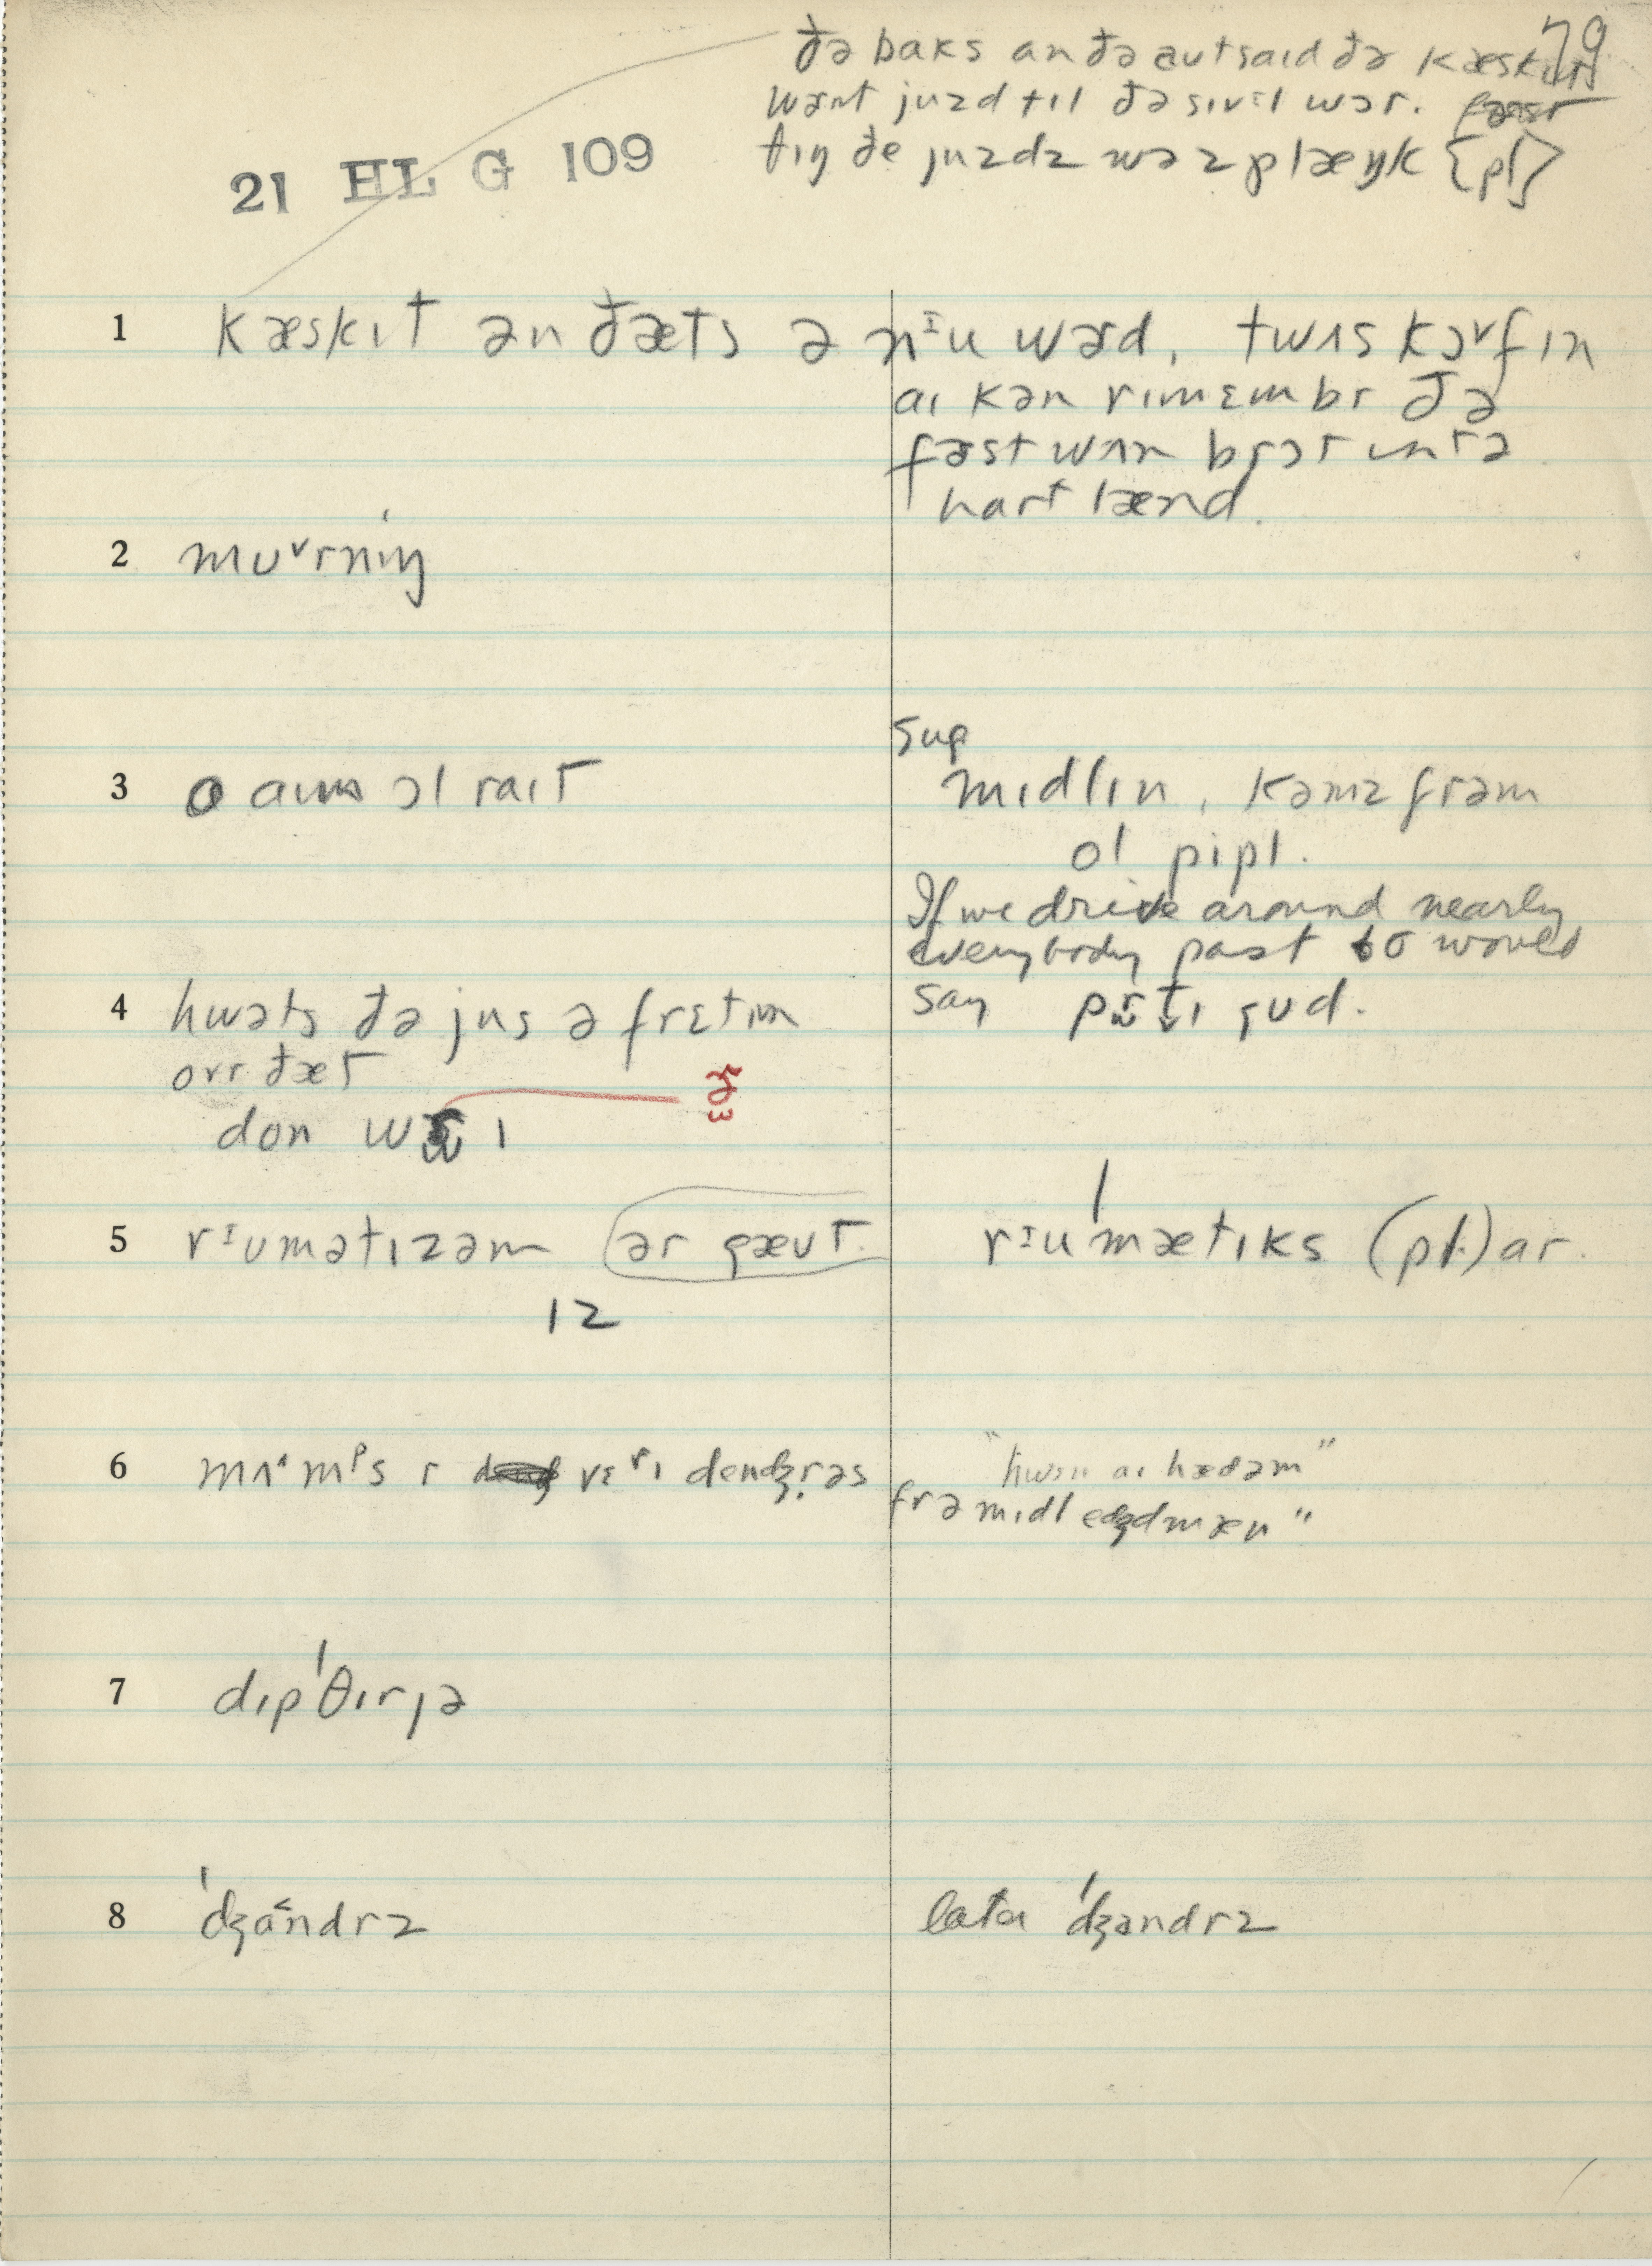 79
ðə baks an ðə autsaɪd ðə kæskɪts
wɚnt juzd tɪl ðə sɪvɪl wɔr.
ðɪŋ ðe juzdz wəz plæŋk {pl}
21 HL G 109
1 kæskɪt ən ðæts ə nᴵu wɚd, twʌs kɔᵛfɪn
aɪ kən rɪmɛmbr ðə
fɚst wʌn brɔt ɪntə
hartlænd.
2 muᵛrnɪŋ
3 o aɪm ɔl raɪt
Sug
mɪdlɪn, kəmz frəm
ol pipl.
If we drive around nearly
everybody past 60 would
say prɪtɪ gud.
4 hwəts ðə jus ə frɛtɪn
ovr ðæt
don wɚɪ
5 rᴵumətɪzəm ər gæut
ɪz
rᴵuˈmætɪks (pl.) ar.
6 mʌmᵖs r vɛrɪ dendʒrəs
"hwɛn aɪ hædəm"
frə mɪdl edʒdmæn"
7 dɪpˈθɪrɪə
8 ˈdʒandrz
later ˈdʒəndrz